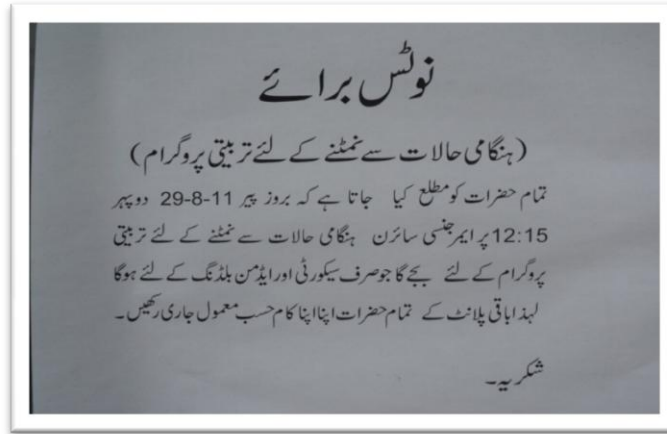 نوٹس برائے
(ہنگامی حالات سے نمٹنے کے لئے تربیتی پروگرام)
تمام حضرات کو مطلع کیا جاتا ہے کہ بروز پیر 29-8-11 دوپہر
12:15 پر ایمرجنسی سائرن ہنگامی حالات سے نمٹنے کے لئے تربیتی
پروگرام کے لئے بجے گا جو صرف سیکورٹی اور ایڈمن بلڈنگ کے لئے ہوگا
لہذا باقی پلانٹ کے تمام حضرات اپنا اپنا کام حسب معمول جاری رکھیں۔
شکریہ۔